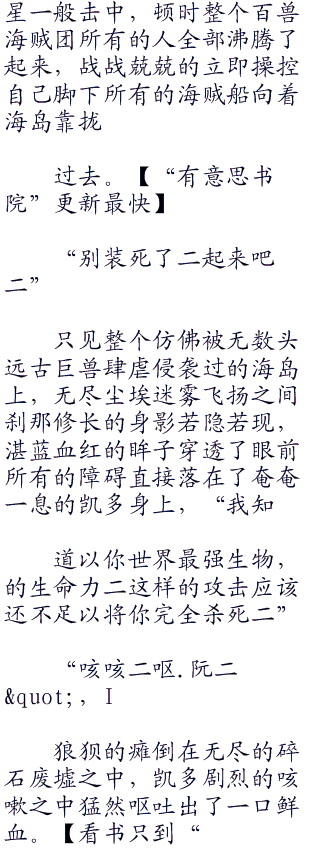 星一般击中，顿时整个百兽
海贼团所有的人全部沸腾了
起来，战战兢兢的立即操控
自己脚下所有的海贼船向着
海岛靠拢
过去。【“有意思书
院”更新最快】
“别装死了二起来吧
二”
只见整个仿佛被无数头
远古巨兽肆虐侵袭过的海岛
上，无尽尘埃迷雾飞扬之间
刹那修长的身影若隐若现，
湛蓝血红的眸子穿透了眼前
所有的障碍直接落在了奄奄
一息的凯多身上，“我知
道以你世界最强生物，
的生命力二这样的攻击应该
还不足以将你完全杀死二”
“咳咳二呕.阮二
&quot;，I
狼狈的瘫倒在无尽的碎
石废墟之中，凯多剧烈的咳
嗽之中猛然呕吐出了一口鲜
血。【看书只到“